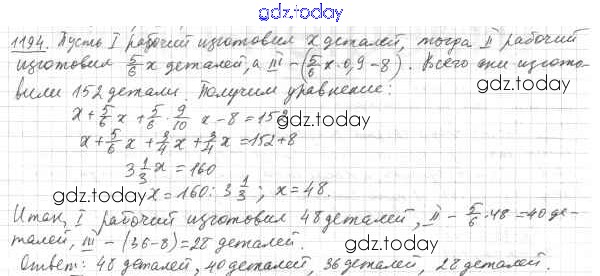 gdz.today
1194. Пусть I рабочий изготовил x деталей, тогда II рабочий
изготовил 5/6 x деталей, а III – (5/6 x · 0,9 – 8). Всего они изгото-
вили 152 детали. Получим уравнение:
x + 5/6 x + 5/6 · 9/10 x – 8 = 152
gdz.today
x + 5/6 x + 3/4 x + 3/4 x = 152 + 8
3 1/3 x = 160
gdz.today x = 160 : 3 1/3 ; x = 48.
gdz.today
Итак, I рабочий изготовил 48 деталей, II – 5/6 · 48 = 40 де-
талей, III – (36 – 8) = 28 деталей.
gdz.today
Ответ: 48 деталей, 40 деталей, 36 деталей, 28 деталей.